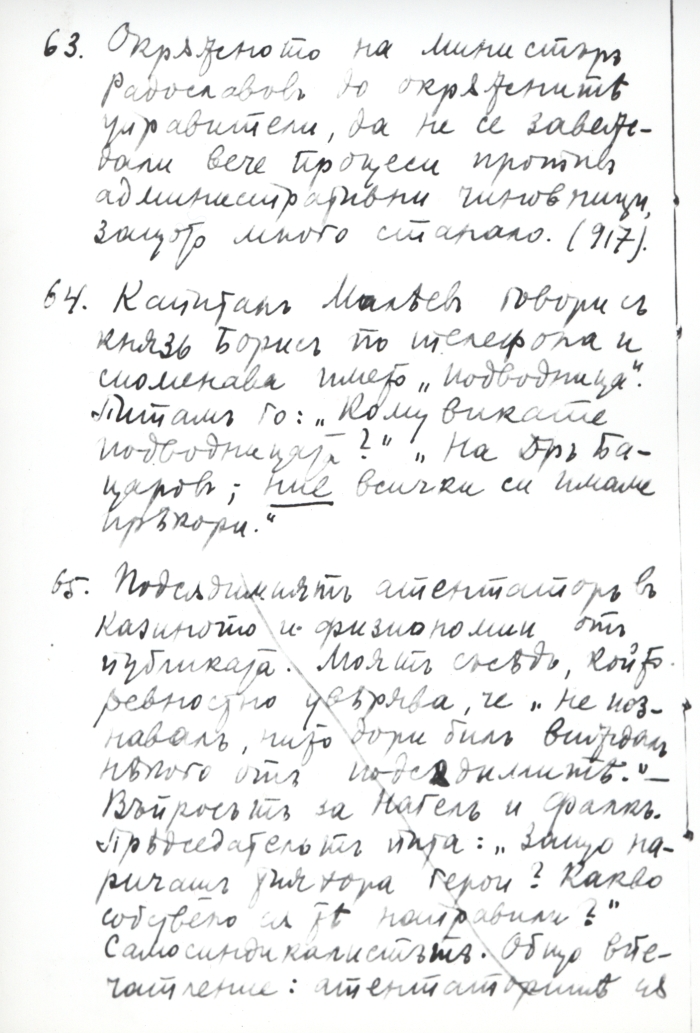 63. Окрѫжното на министъръ
Радославовъ до окрѫжнитѣ
управители, да не се завеж-
дали вече процеси противъ
административни чиновници,
защото много станало. (917).
64. Капитанъ Малѣевъ говори съ
князь Борисъ по телефона и
споменава името „Подводница".
Питамъ го: „Кому викате
подводницата?" „На Дръ Ба-
царовъ; ние всички си имаме
прѣкори."
65. Подсѫдимиятъ атентаторъ въ
казиното и физиономии отъ
публиката. Моятъ съсѣдъ, който
ревностно увѣрява, че „не поз-
навалъ, нито дори билъ виждалъ
нѣкого отъ подсѫдимитѣ."—
Въпросътъ за Нагель и Фалкъ.
Прѣдседательтъ пита: „Защо на-
ричашъ тия хора герои? Какво
собствено сѫ тѣ направили?"
Самосиндикалистътъ. Общо впе-
чатление: атентаторитѣ сѫ